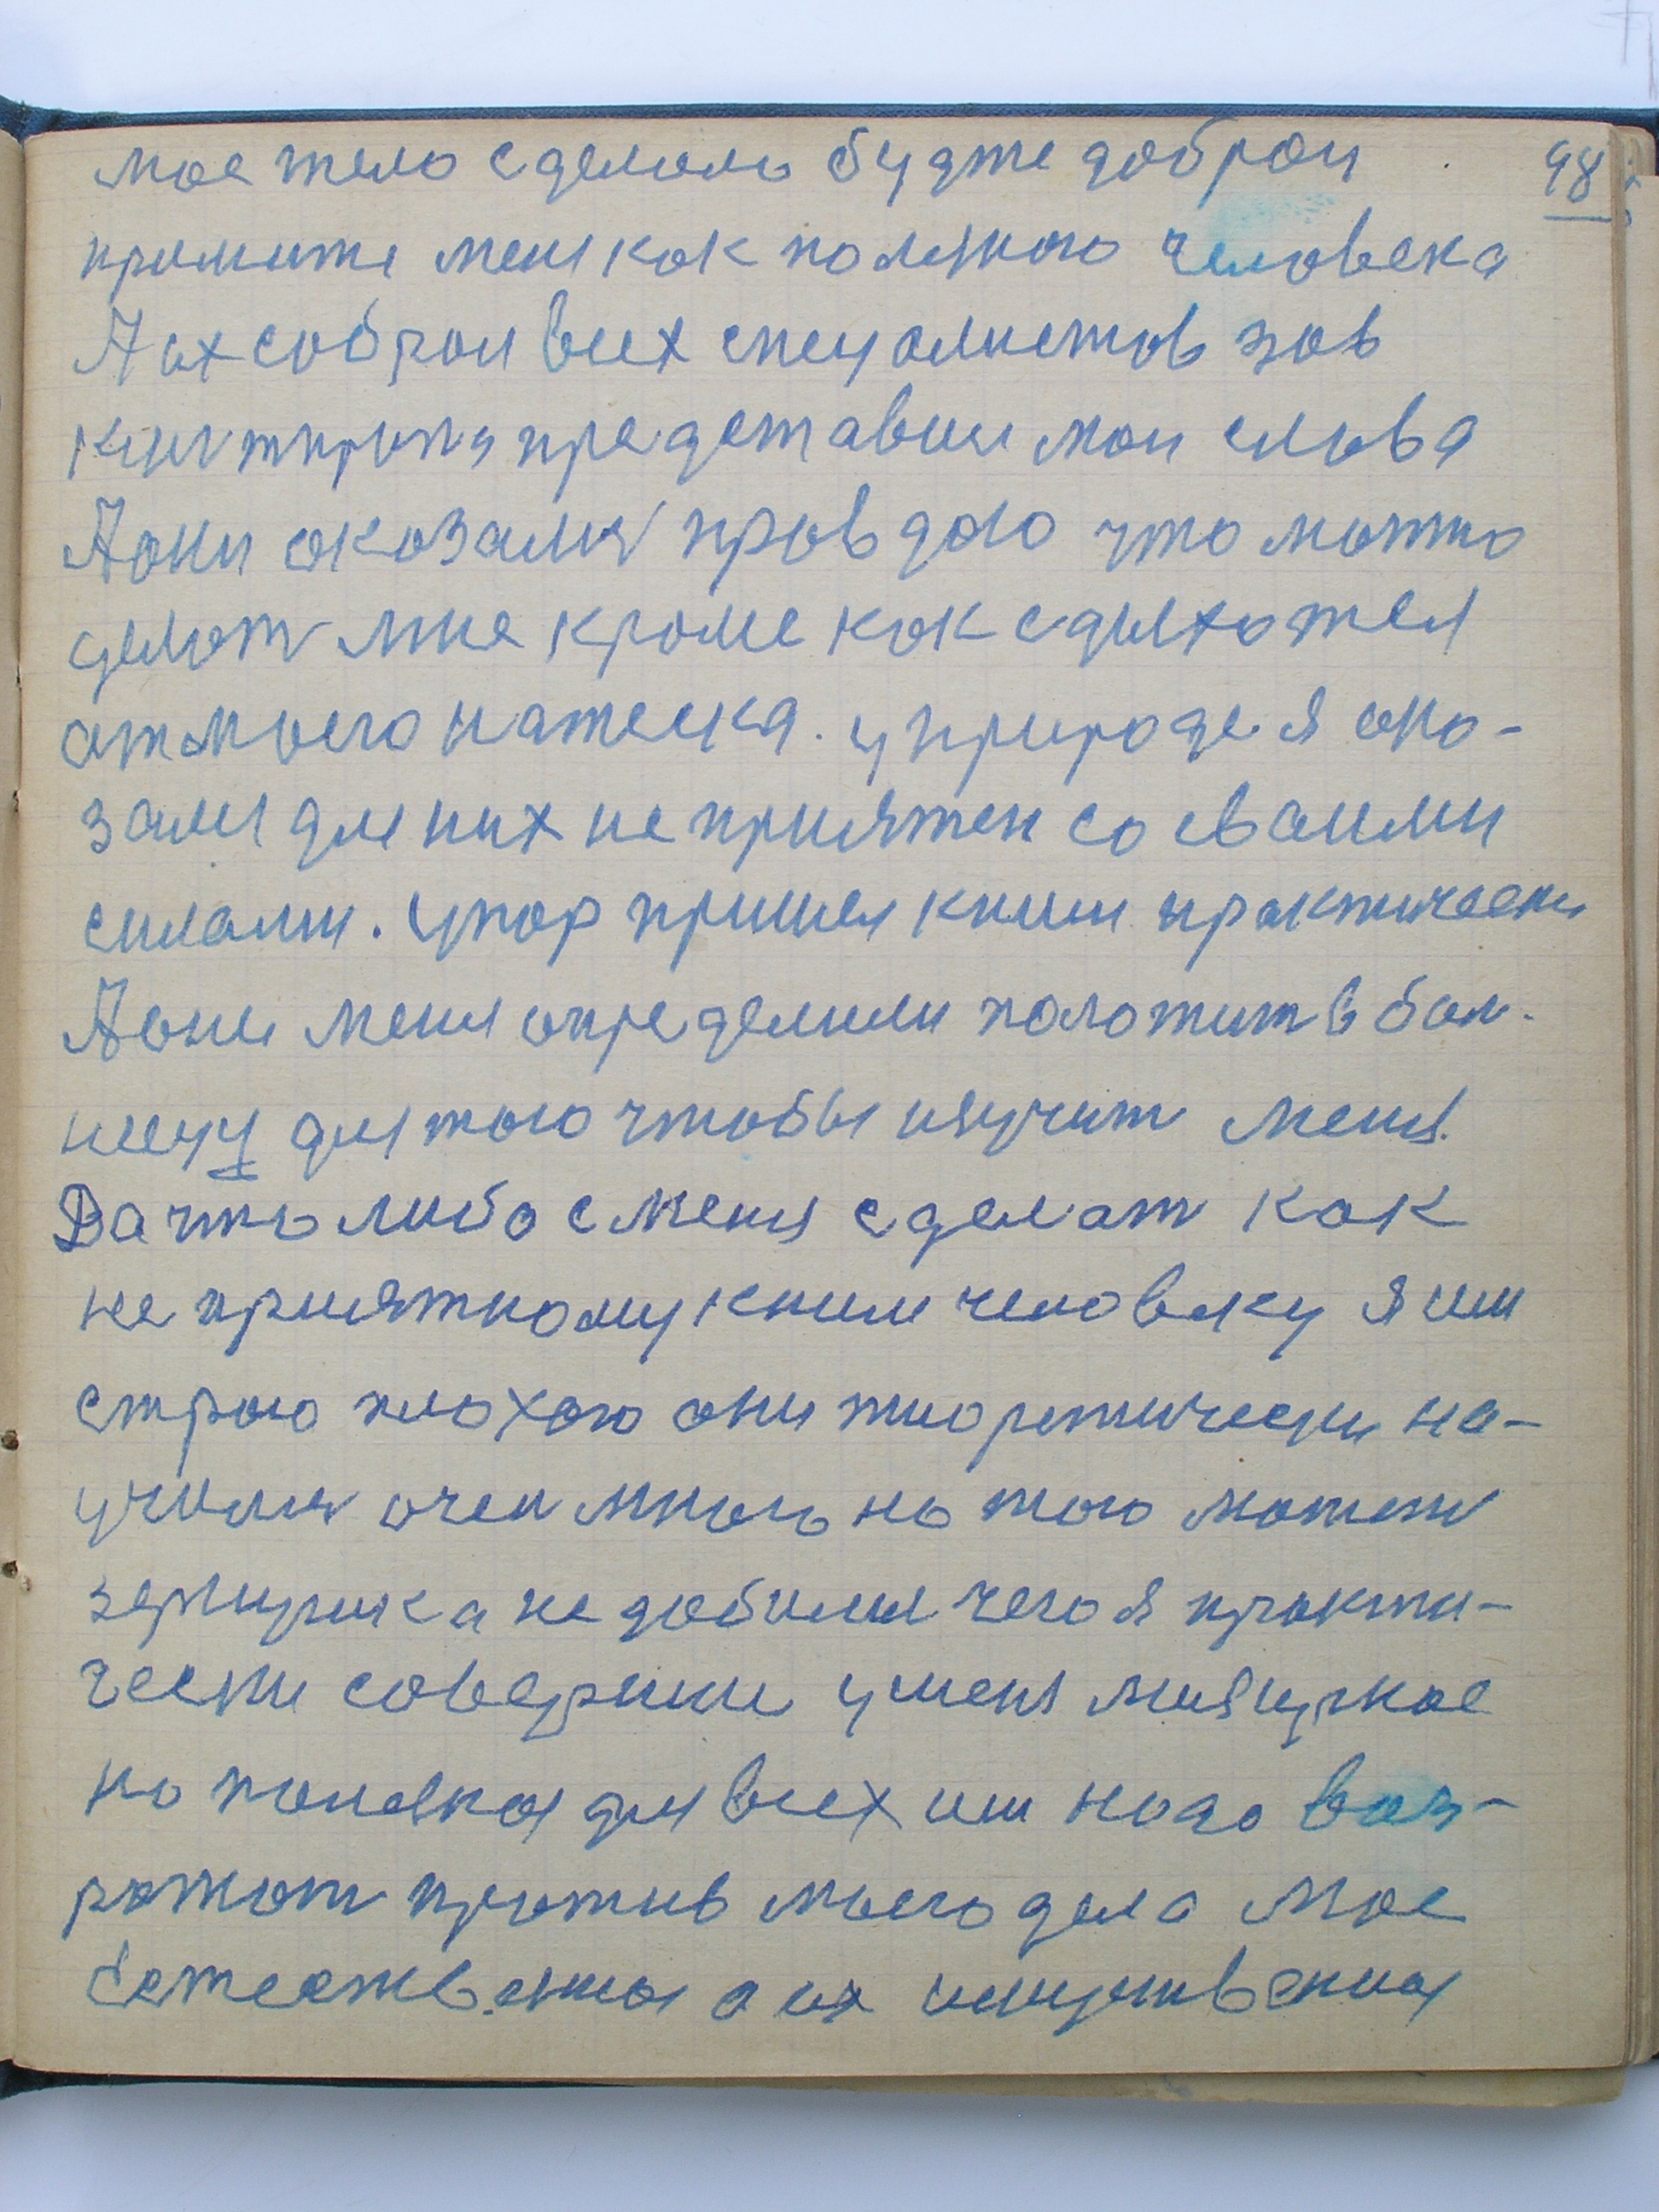 мое тело сделоло будте доброи 98
примите меня как ползного человека
А их собрал всех спецалистов зав
представил мои слова
А они оказалия правдою что можно
делат мне кроме как сдыхотел
от моего натеска. у природе я ока-
залы для них не приятен со сваими
силами. Упор пришел кним практически
А они меня определили положит в бол-
нецу для того чтобы изучит меня.
Да что либо с меня сделат как
не приятному кним человеку я им
строю плохою они тиоретически на-
училия очен много но того может
не добилия чего я практи-
чески совершил у меня
но полезная для всех им надо воз-
ражат против моего дела мое
Естественная а их искуственая